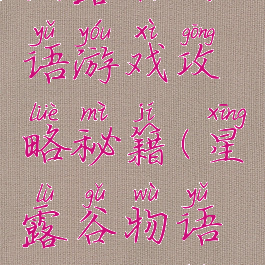 yǔ yóu xì gōng
语游戏攻
lüè mì jí xīng
略秘籍(星
lù gǔ wù yǔ
露谷物语